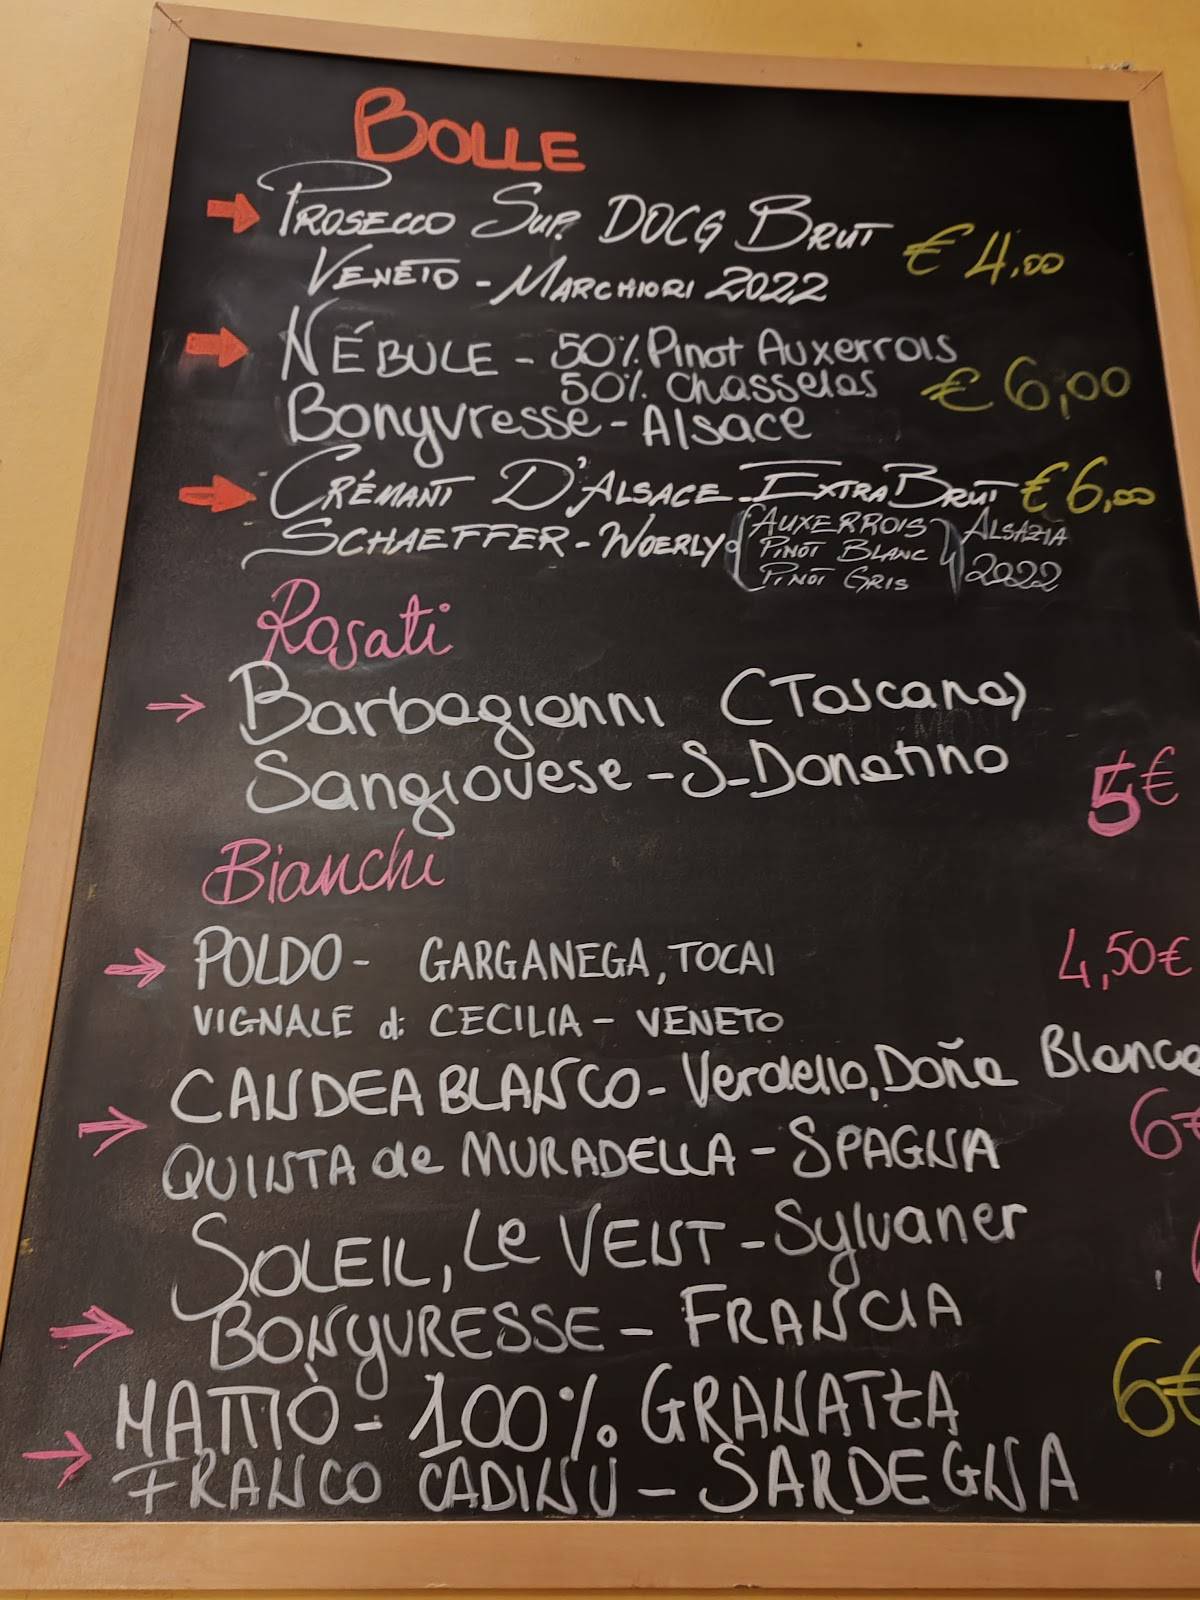 BOLLE
PROSECCO SUP. DOCG BRUT
VENETO - MARCHIORI 2022
€ 4,00
NÉBULE - 50% Pinot Auxerrois
50% Chasselas
€ 6,00
Bonyvresse - Alsace
CRÉMANT D'ALSACE - EXTRA BRUT € 6,00
SCHAEFFER - WOERLY
AUXERROIS
PINOT BLANC
PINOT GRIS
ALSAZIA
2022
Rosati
Barbagianni (Toscana)
Sangiovese - S. Donatino
5€
Bianchi
POLDO - GARGANEGA, TOCAI
4,50€
VIGNALE di CECILIA - VENETO
CANDEA BLANCO - Verdello, Doña Blanca
6€
QUINTA de MURADELLA - SPAGNA
SOLEIL, Le VENT - Sylvaner
BONYVRESSE - FRANCIA
MATTÒ - 100% GRANATZA
6€
FRANCO CADINU - SARDEGNA